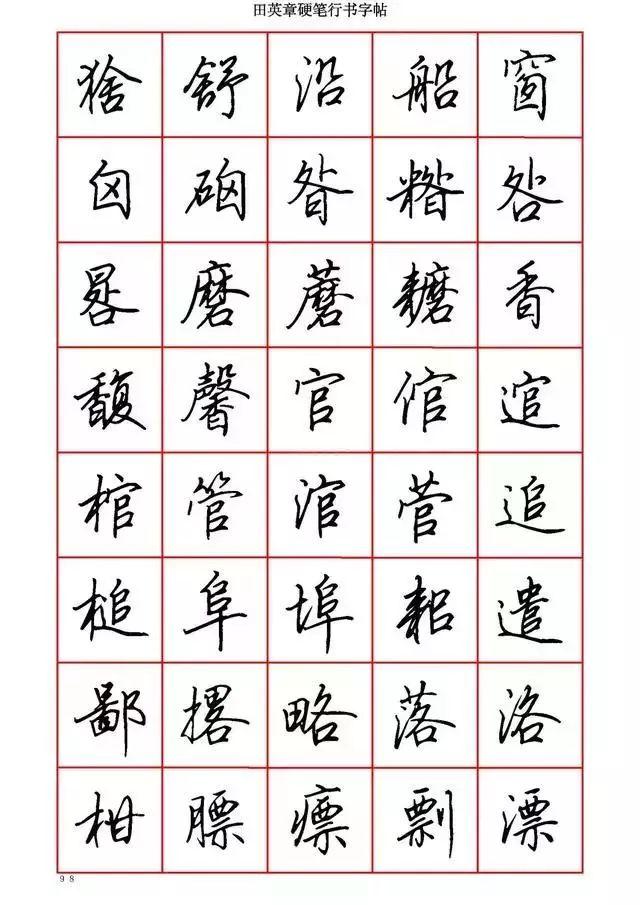 田英章硬笔行书字帖
猞舒沿船窗
囟硇昝糌咎
晷磨蘑耱香
馥馨官倌逭
棺管涫菅追
槌阜埠耜遣
鄙撂略落洛
柑膘瘭剽漂
98